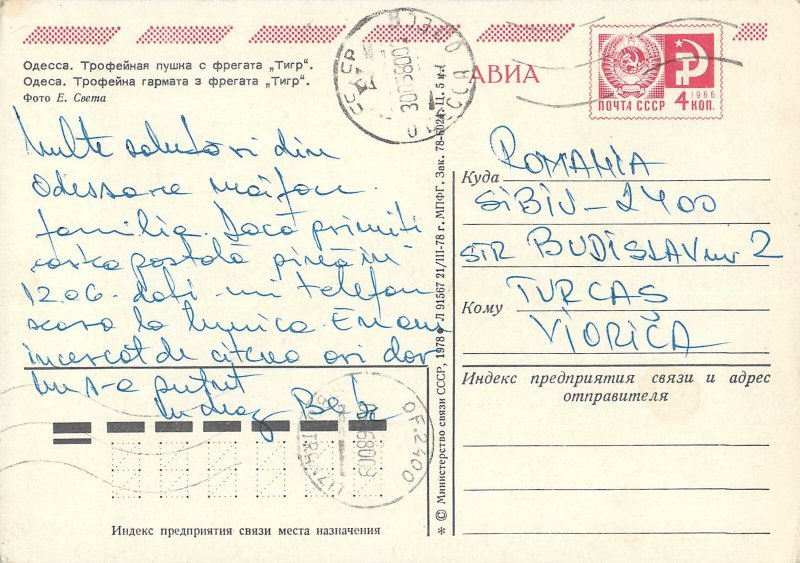 Одесса. Трофейная пушка с фрегата „Тигр“.
Одеса. Трофейна гармата з фрегата „Тигр“.
Фото Е. Света
АВИА
1966
ПОЧТА СССР 4 КОП.
ОДЕССА
Multe salutări din
Odessa
familia. Dacă primiți
cartea poștală pînă în
12.06. dați-mi telefon
seara la Lunica. Eu am
încercat de cîteva ori dar
nu s-a putut
Куда ROMANIA
SIBIU-2400
STR BUDISLAV nr 2
Кому TURCAS
VIORICA
Индекс предприятия связи и адрес
отправителя
OF. 2400
Индекс предприятия связи места назначения
* © Министерство связи СССР, 1978 * Л 91567 21/III-78 г. МПФГ. Зак. 78-6024. Ц. 5 к.